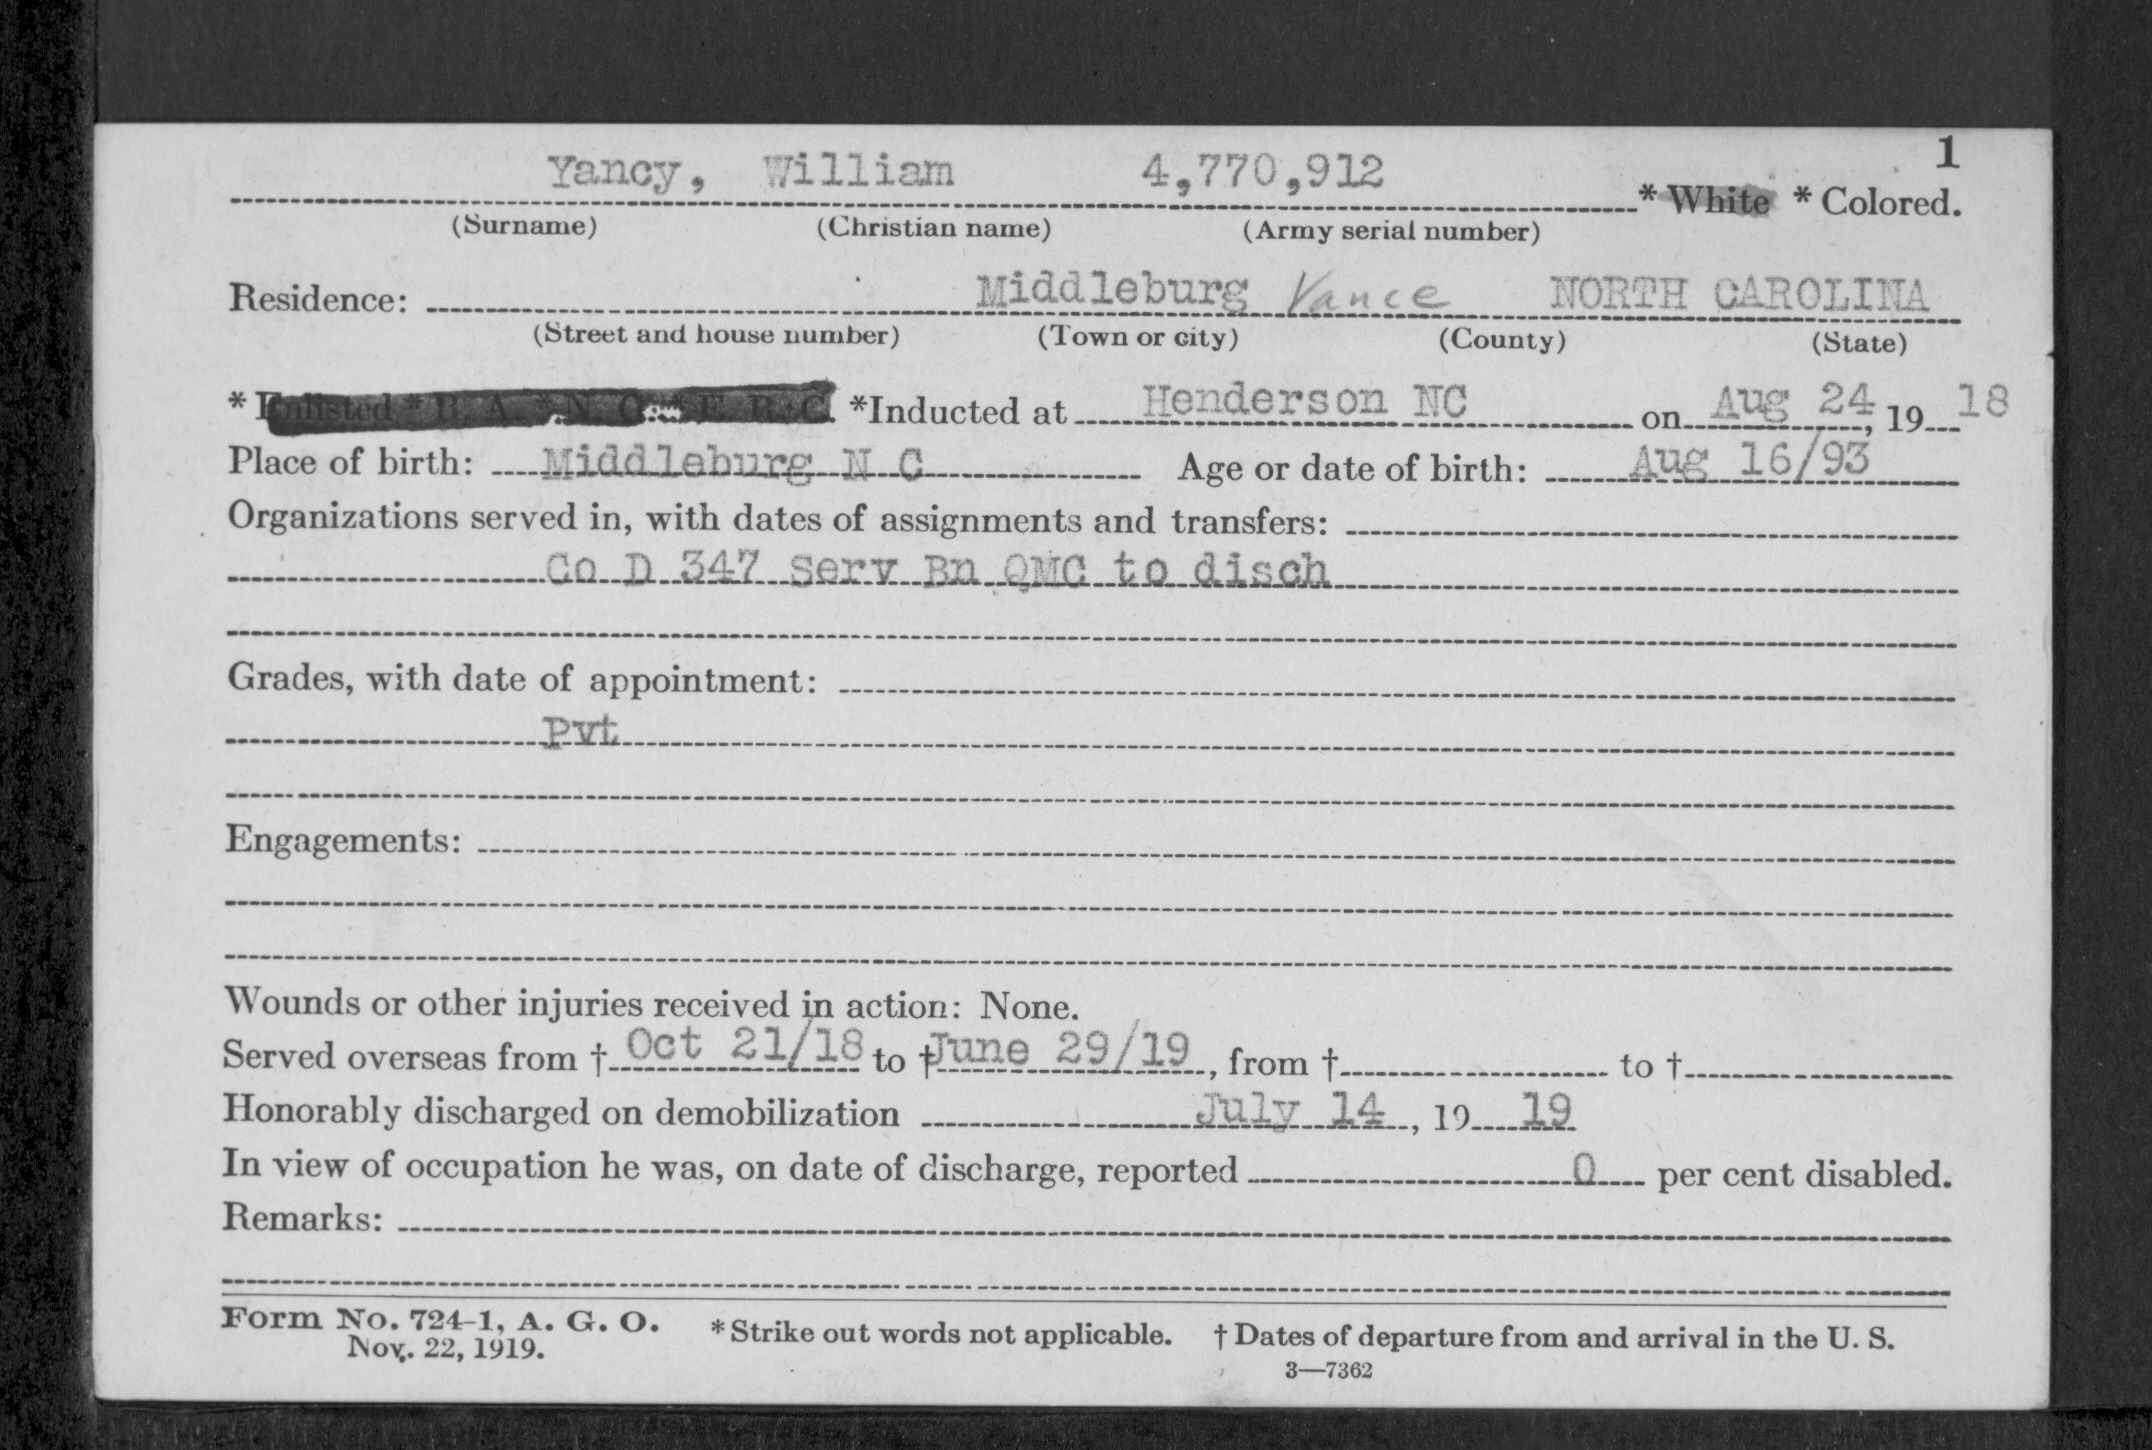 1
Yancy, William 4,770,912 * White * Colored.
(Surname) (Christian name) (Army serial number)
Residence: Middleburg Vance NORTH CAROLINA
(Street and house number) (Town or city) (County) (State)
* Enlisted * R. A. * N. G. * E. R. C. *Inducted at Henderson NC on Aug 24, 19 18
Place of birth: Middleburg N C Age or date of birth: Aug 16/93
Organizations served in, with dates of assignments and transfers:
Co D 347 Serv Bn QMC to disch
Grades, with date of appointment:
Pvt
Engagements:
Wounds or other injuries received in action: None.
Served overseas from † Oct 21/18 to † June 29/19, from † to †
Honorably discharged on demobilization July 14, 19 19
In view of occupation he was, on date of discharge, reported 0 per cent disabled.
Remarks:
Form No. 724-1, A. G. O. * Strike out words not applicable. † Dates of departure from and arrival in the U. S.
Nov. 22, 1919.
3—7362